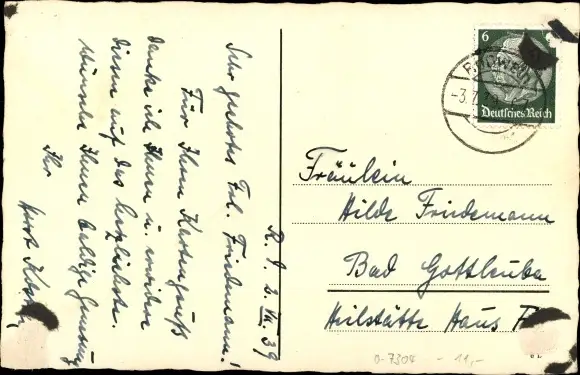 R. d. 2. VII. 39
Sehr geehrtes Frl. Friedemann!
Für Ihren Kartengruß
danke ich Ihnen u. erwidere
diesen auf das herzlichste.
wünsche Ihnen baldige Genesung
Ihr
Kurt
6
Deutsches Reich
-3.7.
Fräulein
Hilde Friedemann
Bad Gottleuba
Heilstätte Haus
0-7304 - 11,-